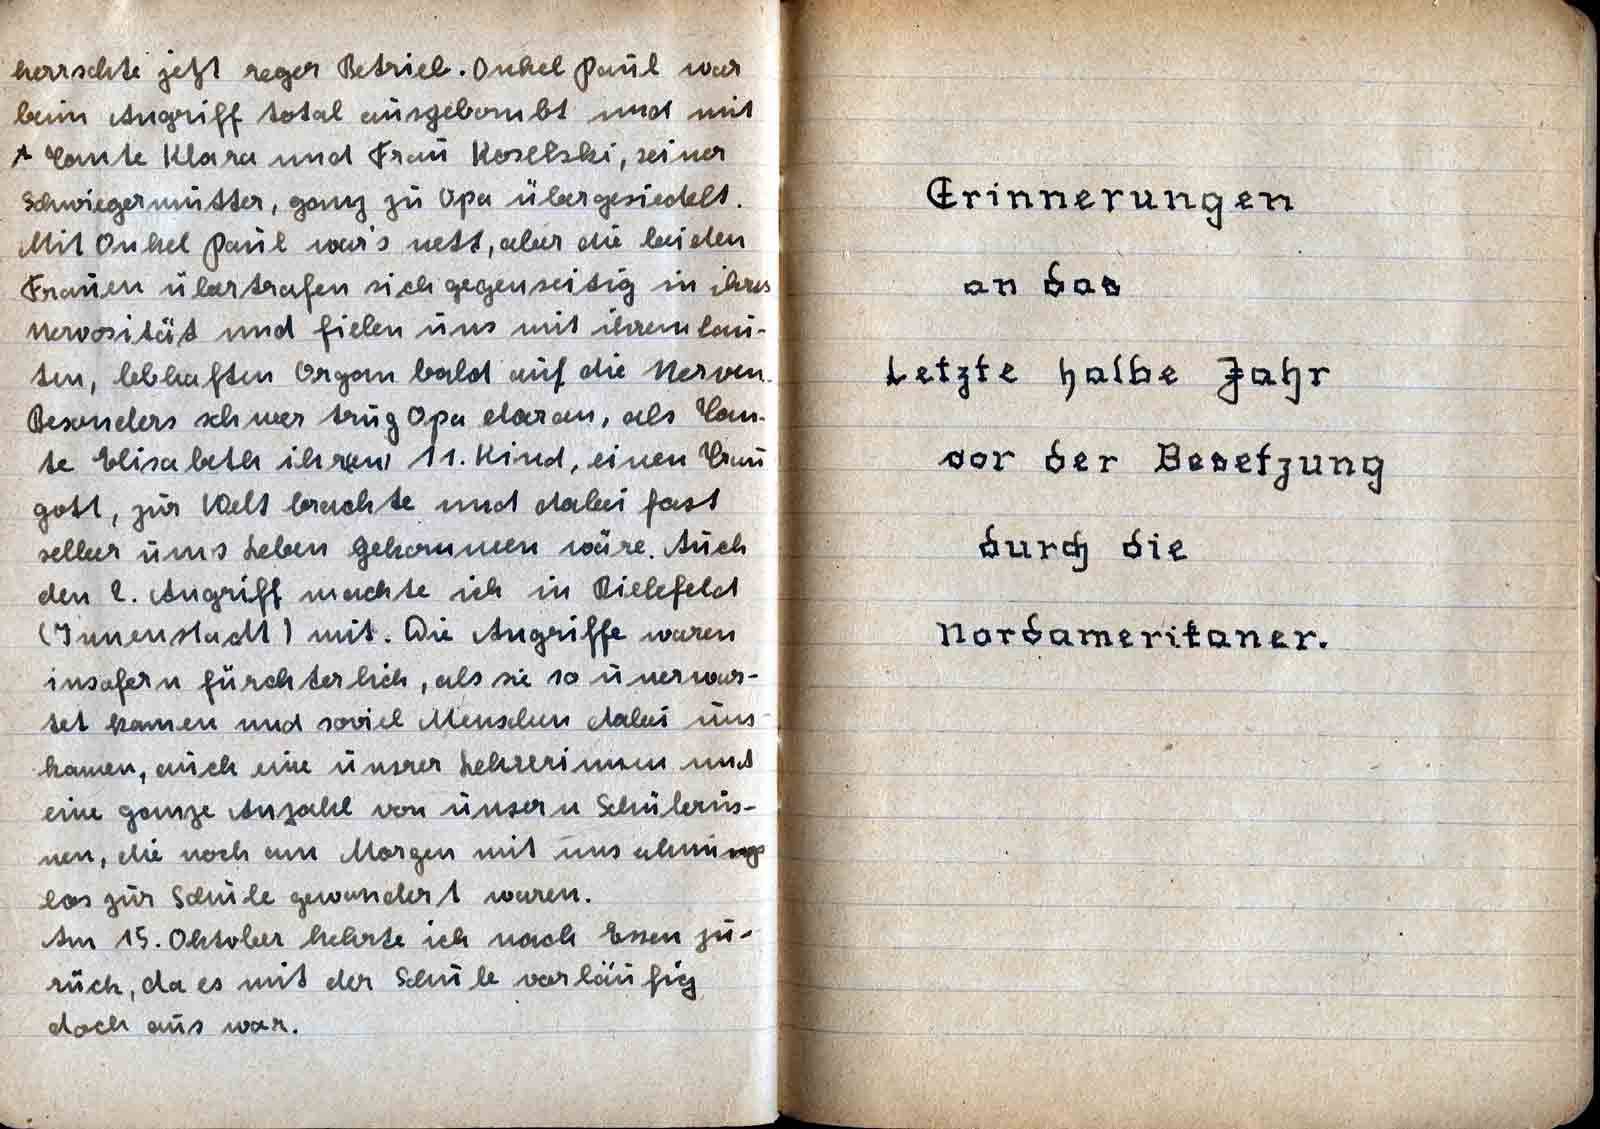 herrschte jetzt reger Betrieb. Onkel Paul war
beim Angriff total ausgebombt und mit
Tante Klara und Frau Koselski, seiner
Schwiegermutter, ganz zu Opa übergesiedelt.
Mit Onkel Paul war's nett, aber die beiden
Frauen übertrafen sich gegenseitig in ihrer
Nervosität und fielen uns mit ihrem lau-
ten, lebhaften Organ bald auf die Nerven.
Besonders schwer trug Opa daran, als Tan-
te Elisabeth ihren 11. Kind, einen Trau
gott, zur Welt brachte und dabei fast
selber ums Leben gekommen wäre. Auch
den 2. Angriff machte ich in Bielefeld
(Innenstadt) mit. Die Angriffe waren
insofern fürchterlich, als sie so unerwar-
tet kamen und soviel Menschen dabei um-
kamen, auch eine unsrer Lehrerinnen und
eine ganze Anzahl von unsern Schülerin-
nen, die noch am Morgen mit uns ahnungs
los zur Schule gewandert waren.
Am 15. Oktober kehrte ich nach Essen zu-
rück, da es mit der Schule vorläufig
doch aus war.
Erinnerungen
an das
Letzte halbe Jahr
vor der Besetzung
durch die
Nordamerikaner.